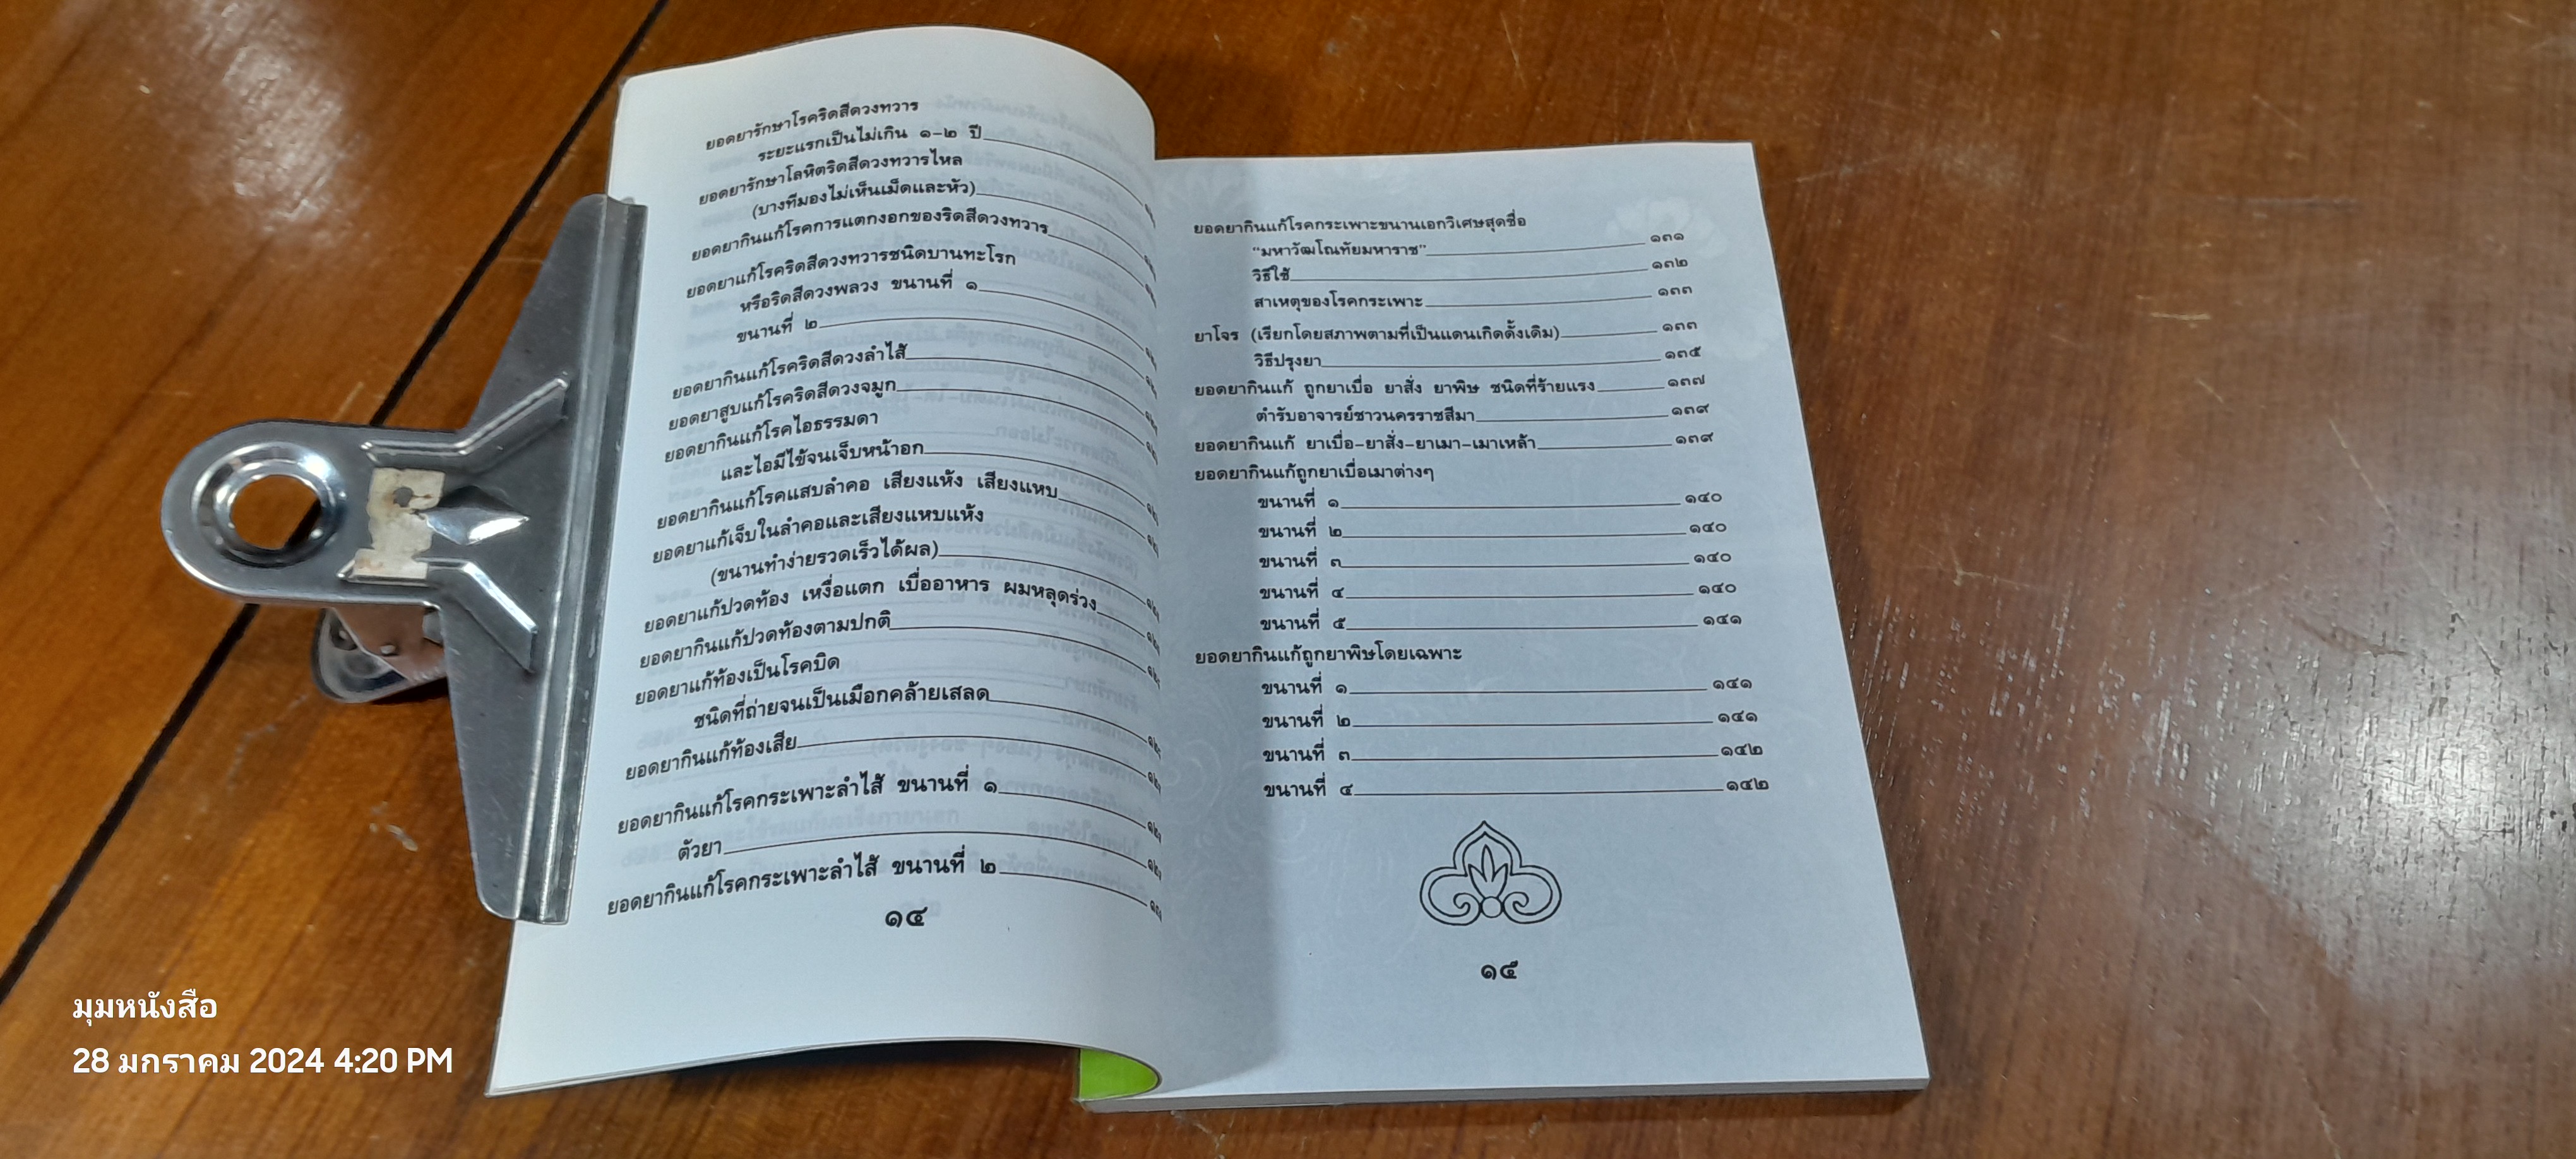 ยอดยารักษาโรคริดสีดวงทวาร
ระยะแรกเป็นไม่เกิน ๑-๒ ปี
ยอดยารักษาโลหิตริดสีดวงทวารไหล
(บางทีมองไม่เห็นเม็ดและหัว)
ยอดยากินแก้โรคการแตกงอกของริดสีดวงทวาร
ยอดยาแก้โรคริดสีดวงทวารชนิดบานทะโรก
หรือริดสีดวงพลวง ขนานที่ ๑
ขนานที่ ๒
ยอดยากินแก้โรคริดสีดวงลำไส้
ยอดยาสูบแก้โรคริดสีดวงจมูก
ยอดยากินแก้โรคไอธรรมดา
และไอมีไข้จนเจ็บหน้าอก
ยอดยากินแก้โรคแสบลำคอ เสียงแห้ง เสียงแหบ
ยอดยาแก้เจ็บในลำคอและเสียงแหบแห้ง
(ขนานทำง่ายรวดเร็วได้ผล)
ยอดยาแก้ปวดท้อง เหงื่อแตก เบื่ออาหาร ผมหลุดร่วง
ยอดยากินแก้ปวดท้องตามปกติ
ยอดยาแก้ท้องเป็นโรคบิด
ชนิดที่ถ่ายจนเป็นเมือกคล้ายเสลด
ยอดยากินแก้ท้องเสีย
ยอดยากินแก้โรคกระเพาะลำไส้ ขนานที่ ๑
ตัวยา
ยอดยากินแก้โรคกระเพาะลำไส้ ขนานที่ ๒
๑๔
ยอดยากินแก้โรคกระเพาะขนานเอกวิเศษสุดชื่อ
"มหาวัฒโณทัยมหาราช" ๑๓๑
วิธีใช้ ๑๓๒
สาเหตุของโรคกระเพาะ ๑๓๓
ยาโจร (เรียกโดยสภาพตามที่เป็นแดนเกิดดั้งเดิม) ๑๓๓
วิธีปรุงยา ๑๓๕
ยอดยากินแก้ ถูกยาเบื่อ ยาสั่ง ยาพิษ ชนิดที่ร้ายแรง ๑๓๗
ตำรับอาจารย์ชาวนครราชสีมา ๑๓๙
ยอดยากินแก้ ยาเบื่อ-ยาสั่ง-ยาเมา-เมาเหล้า ๑๓๙
ยอดยากินแก้ถูกยาเบื่อเมาต่างๆ
ขนานที่ ๑ ๑๔๐
ขนานที่ ๒ ๑๔๐
ขนานที่ ๓ ๑๔๐
ขนานที่ ๔ ๑๔๐
ขนานที่ ๕ ๑๔๑
ยอดยากินแก้ถูกยาพิษโดยเฉพาะ
ขนานที่ ๑ ๑๔๑
ขนานที่ ๒ ๑๔๑
ขนานที่ ๓ ๑๔๒
ขนานที่ ๔ ๑๔๒
๑๕
มุมหนังสือ
28 มกราคม 2024 4:20 PM